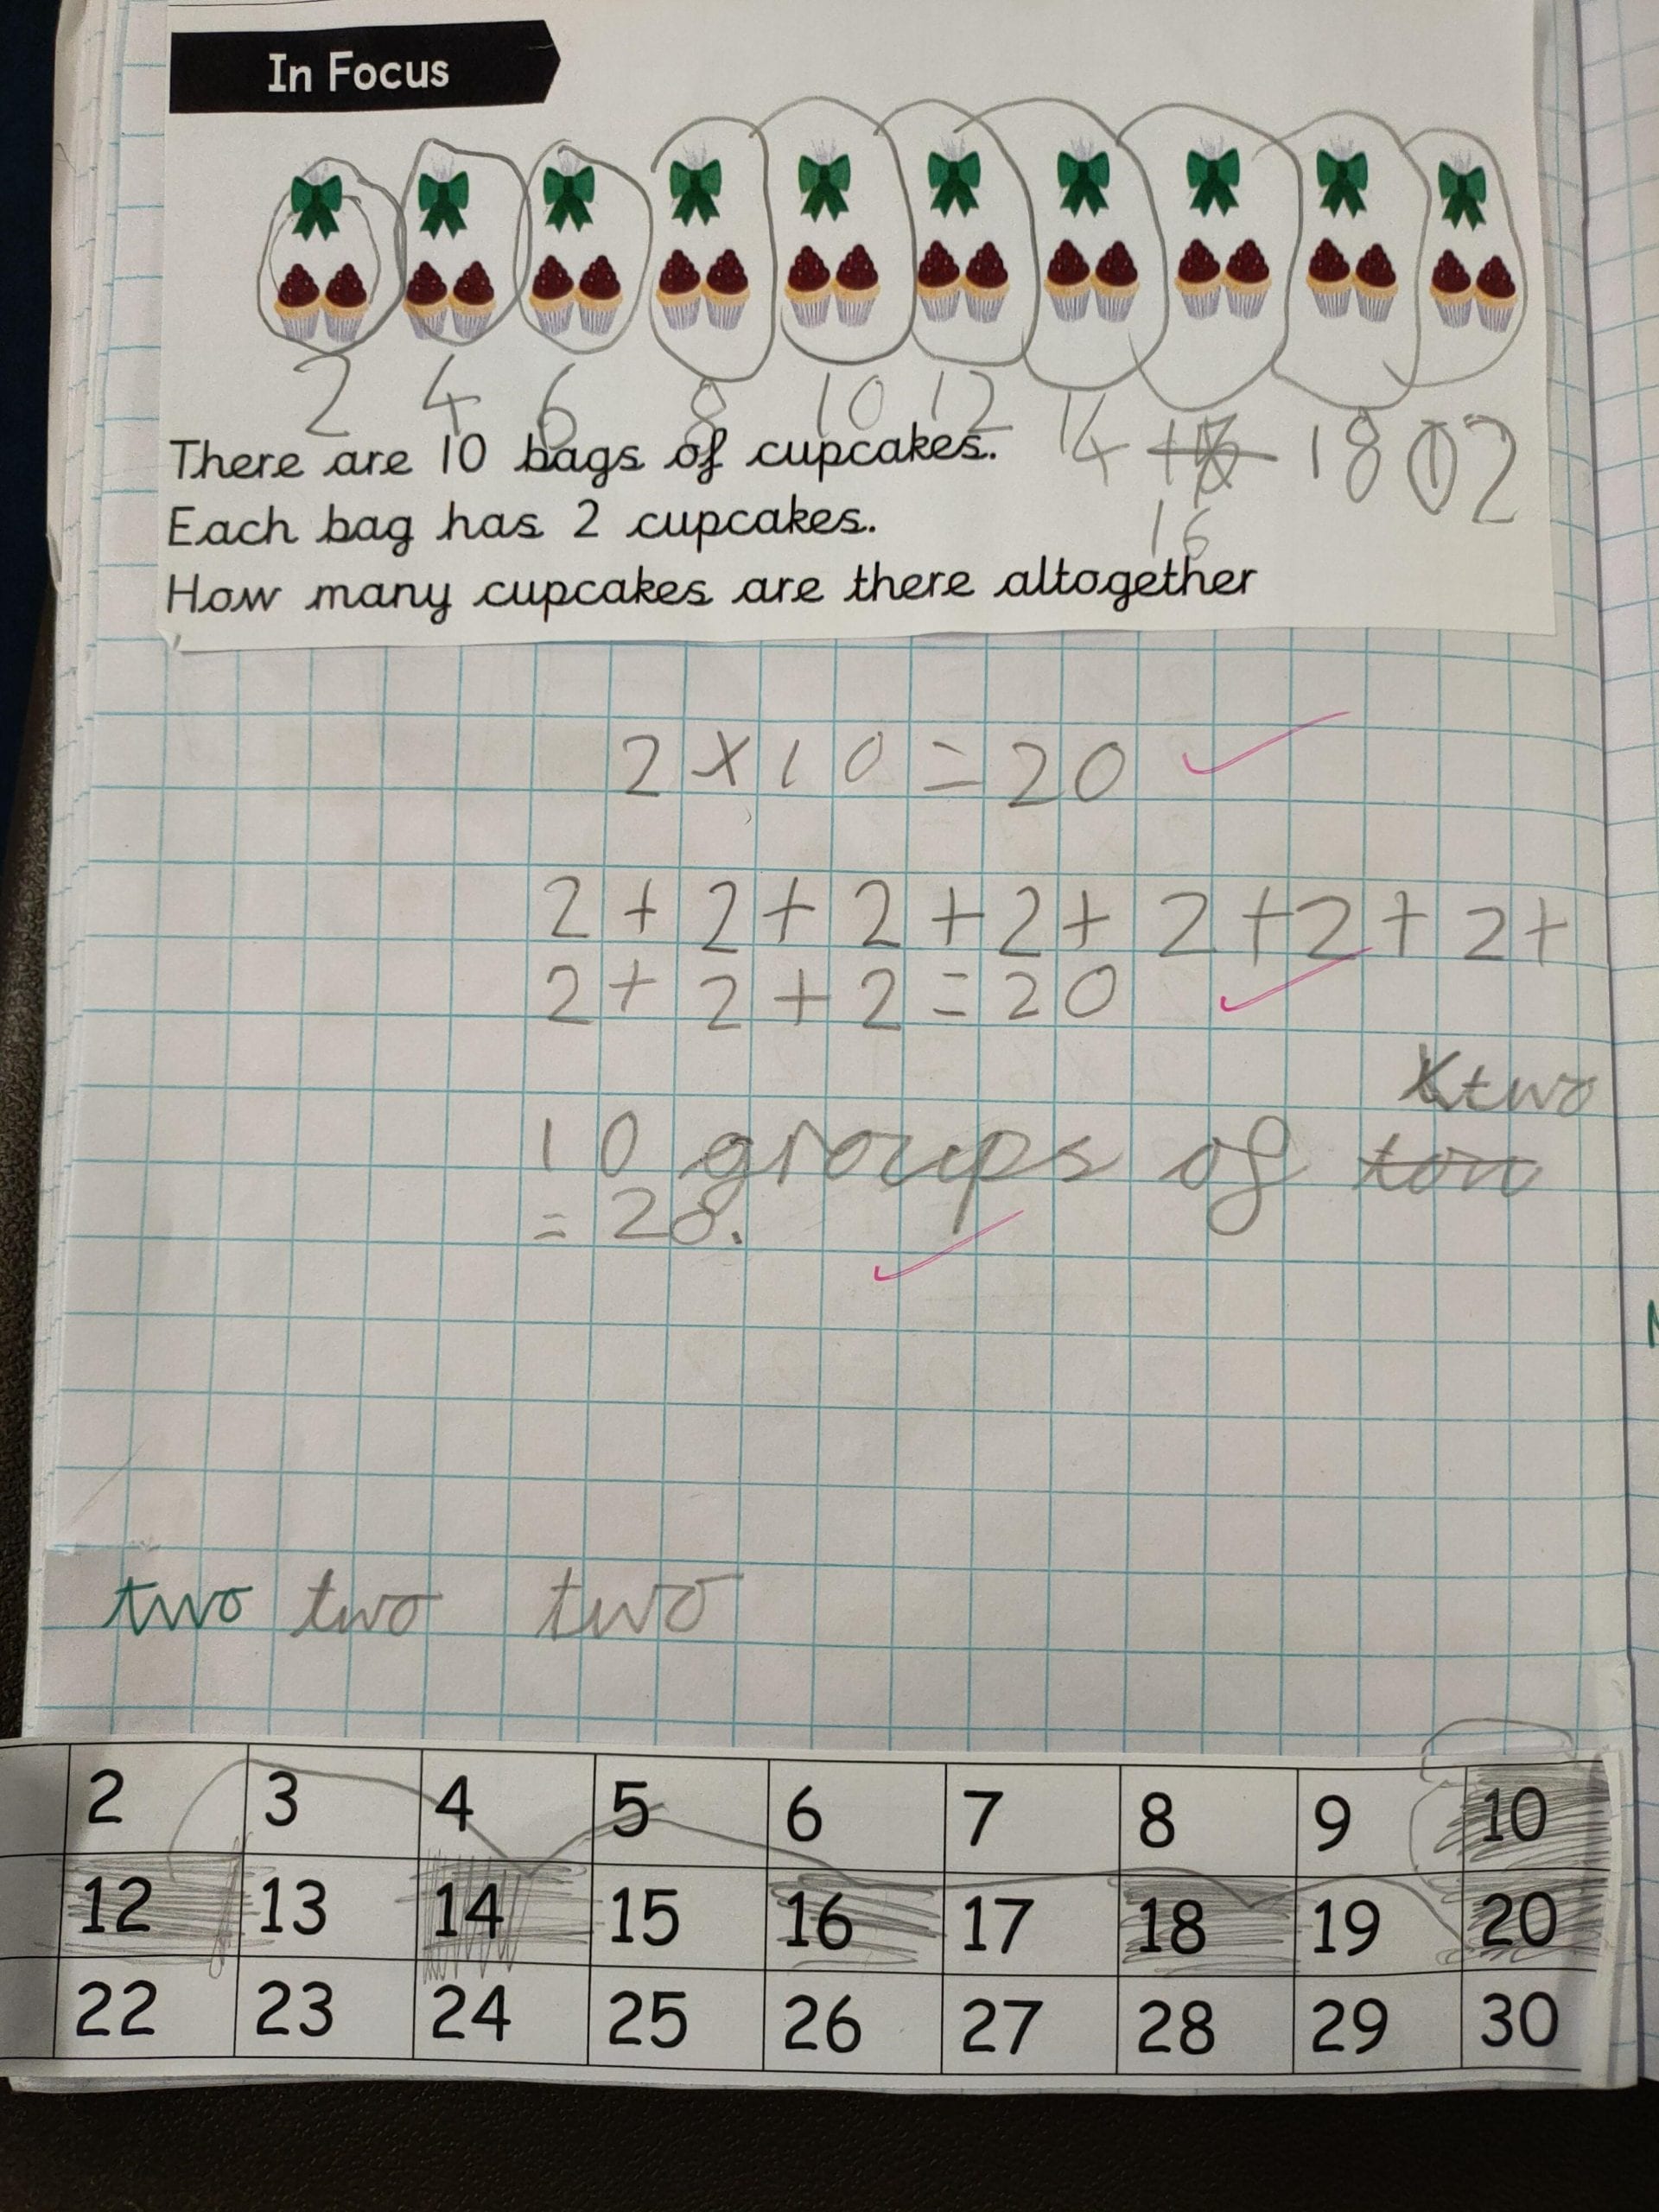 In Focus
2 4 6 8 10 12 14 18 02
16
There are 10 bags of cupcakes.
Each bag has 2 cupcakes.
How many cupcakes are there altogether
2 x 10 = 20
2 + 2 + 2 + 2 + 2 + 2 + 2 +
2 + 2 + 2 = 20
two
10 groups of tow
= 20.
two two two
2 3 4 5 6 7 8 9 10
12 13 14 15 16 17 18 19 20
22 23 24 25 26 27 28 29 30